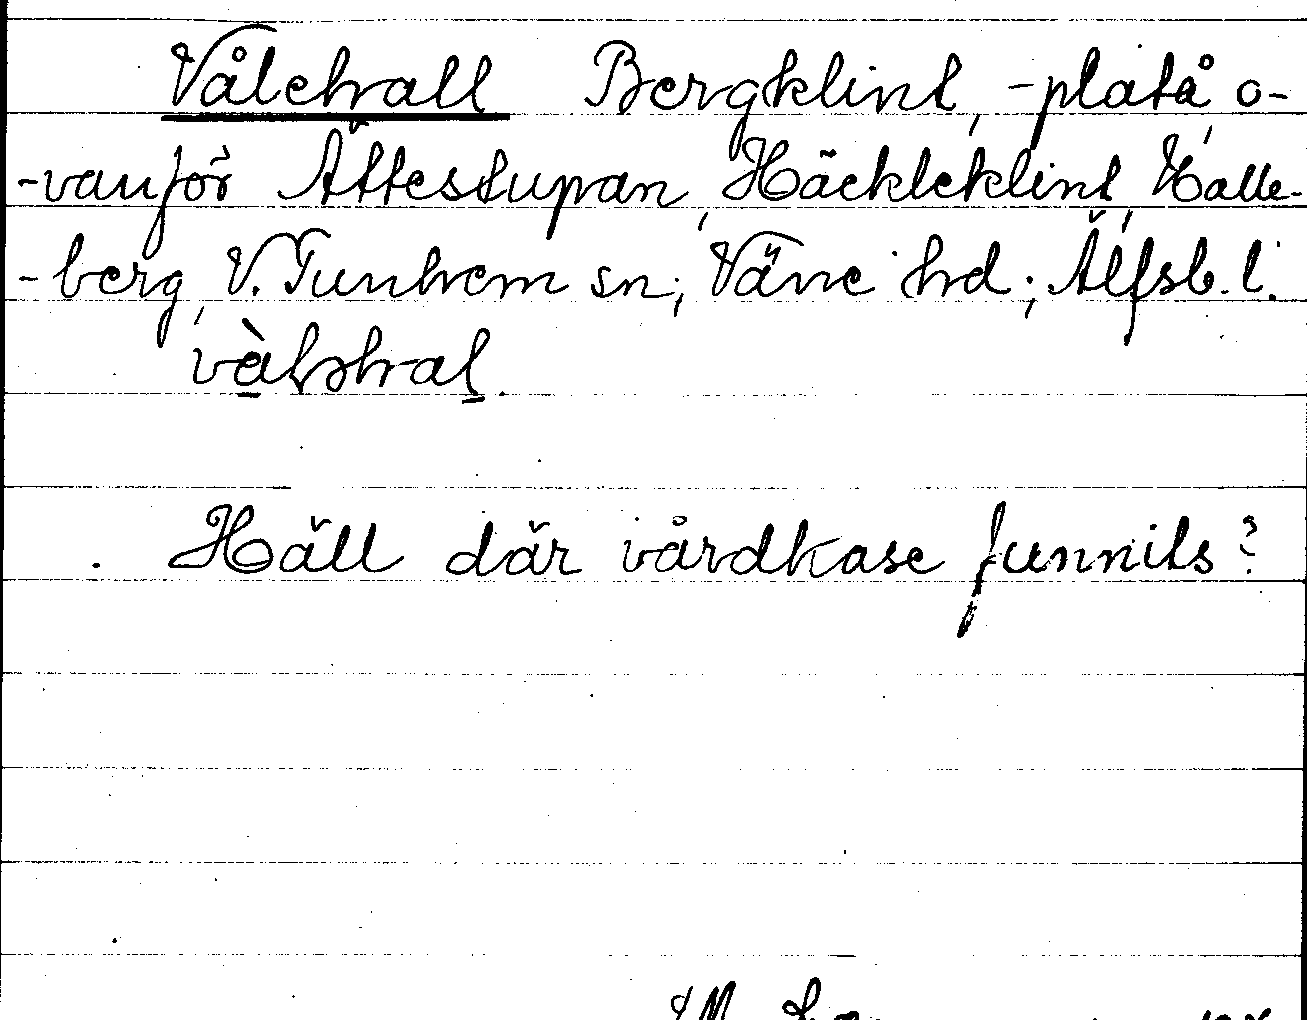 Vålehall Bergklint, -platå, o-
-vanför Ättestupan, Häckleklint, Halle-
-berg, V. Tunhem sn; Väne hd; Älfsb. l.
Häll där vårdkase funnits?